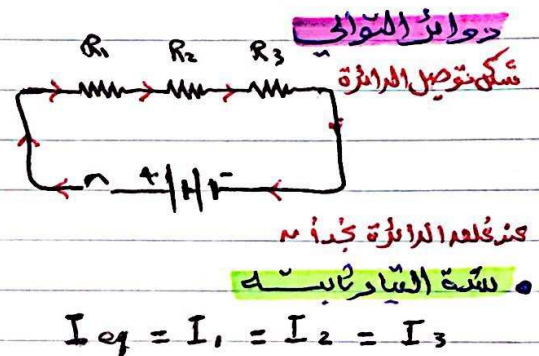 دوائر التوالي
شكل توصيل الدائرة
R1 R2 R3
+ -
عند غلق الدائرة نجد أن
• شدة التيار ثابتة
I eq = I1 = I2 = I3